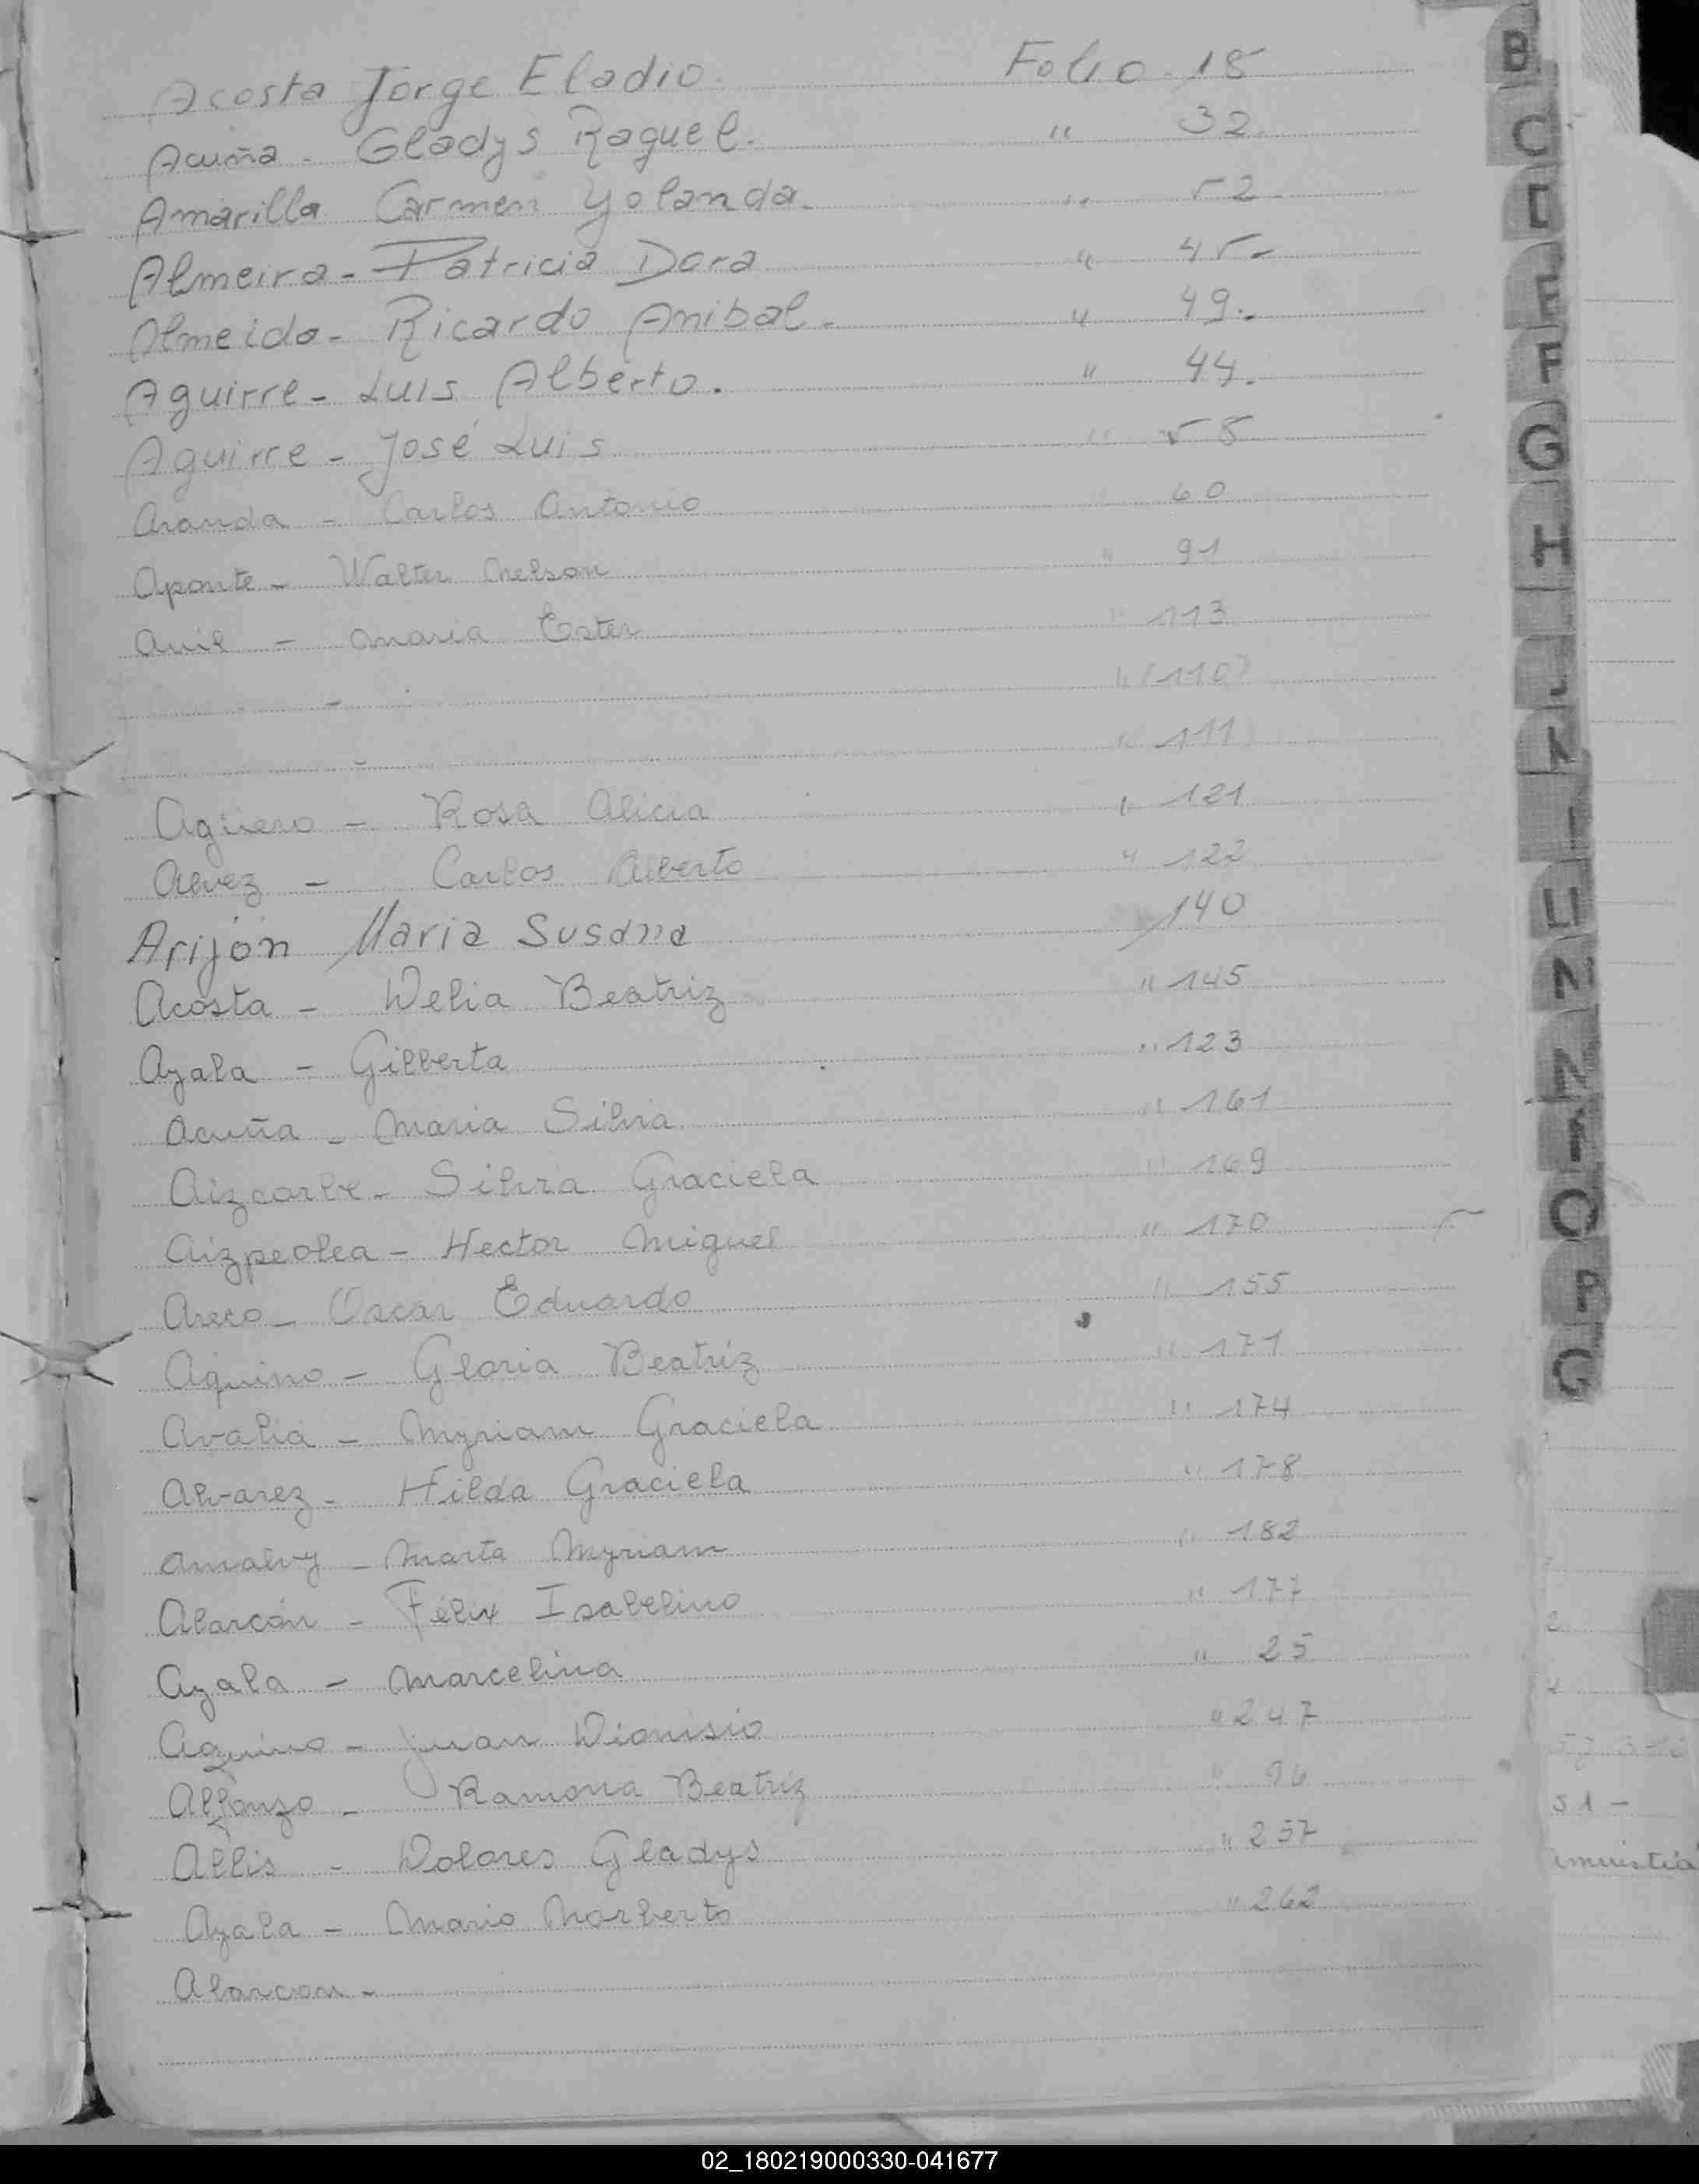 Acosta Jorge Eladio Folio 18
Acuña - Gladys Raquel. " 32.
Amarilla Carmen Yolanda. " 52.
Almeira - Patricia Dora " 45-
Almeida - Ricardo Anibal. " 49.-
Aguirre - Luis Alberto. " 44.
Aguirre - José Luis " 58
Aranda - Carlos Antonio " 60
Aponte - Walter Nelson " 91
- Maria Ester " 113
- " (110)
- " 111
Agüero - Rosa Alicia " 121
Alvez - Carlos Alberto " 122
Arijón Maria Susana " 140
Acosta - Delia Beatriz " 145
Ayala - Gilberta " 123
Acuña - Maria Silvia " 161
Aizcorbe - Silvia Graciela " 169
Aizpeolea - Hector Miguel " 170
Areco - Oscar Eduardo " 155
Aquino - Gloria Beatriz " 171
Avalia - Myriam Graciela " 174
Alvarez - Hilda Graciela " 178
Amalvy - Marta Myriam " 182
Alarcón - Félix Isabelino " 177
Ayala - Marcelina " 25
Aquino - Juan Dionisio " 247
Alfonzo - Ramona Beatriz " 96
Allis - Dolores Gladys " 257
Ayala - Mario Norberto " 262
Alarcon -
B
C
F
G
H
J
N
Ñ
O
P
Q
51 -
02_180219000330-041677